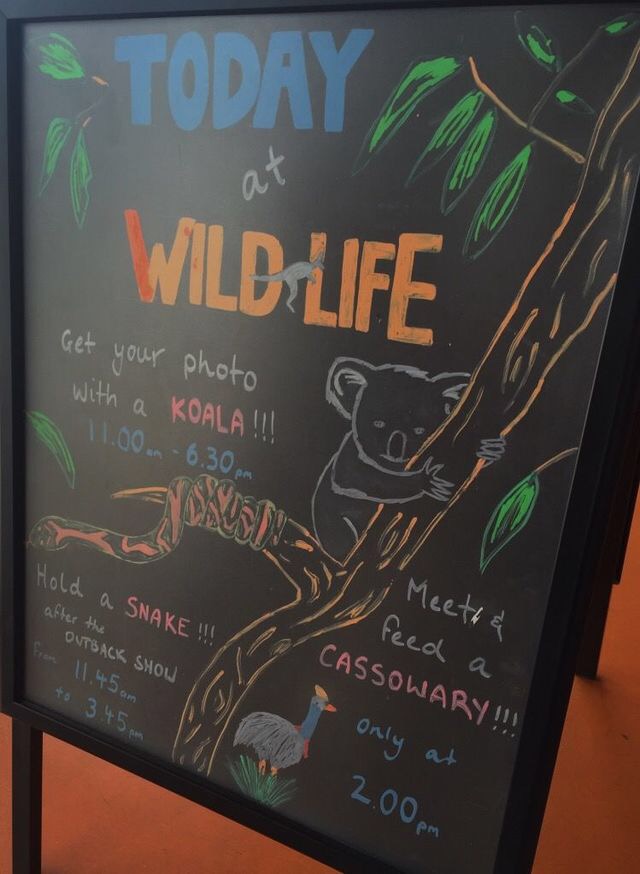 TODAY
at
WILD LIFE
Get your photo
with a KOALA!!!
11.00am - 6.30pm
Hold a SNAKE!!!
after the
OUTBACK SHOW
From 11.45am
to 3.45pm
Meet &
feed a
CASSOWARY!!!
only at
2.00pm